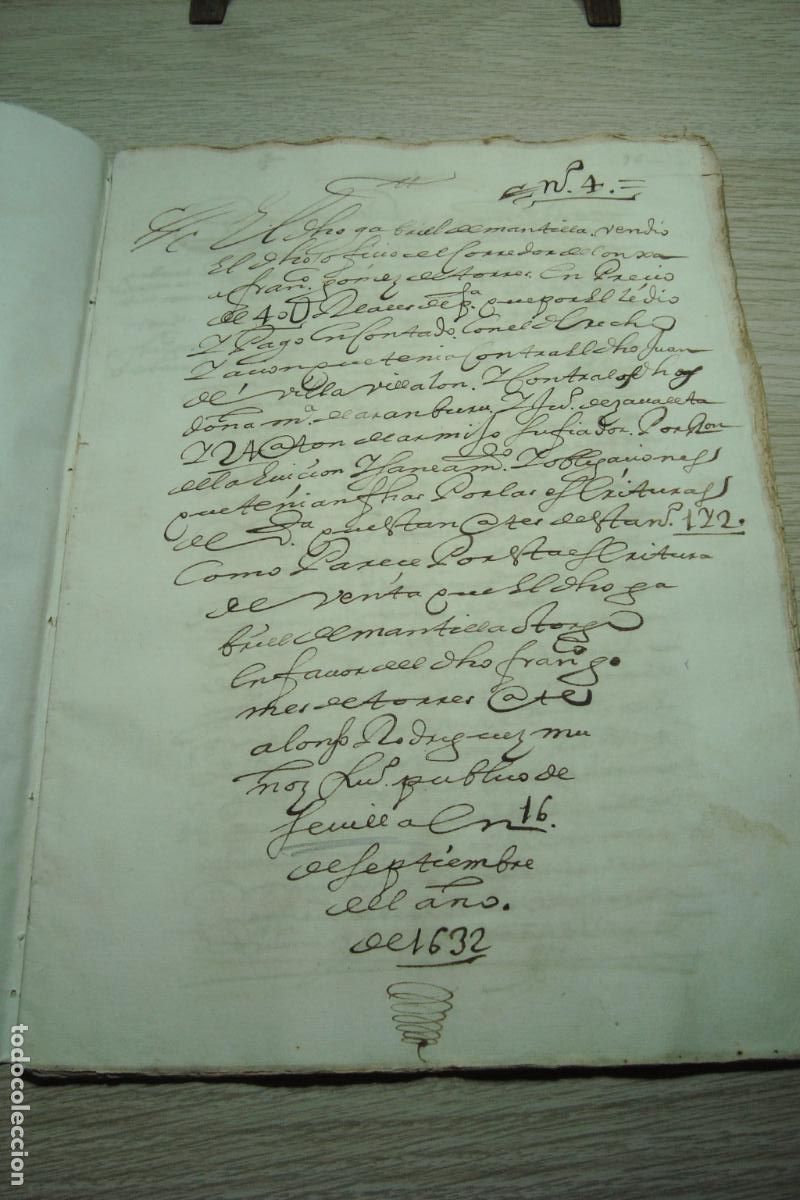 nº. 4. =
El dho gabriel de mantilla. vendio
El dho offiçio de Corredor de lonxa
a franco. gomez de torres. En Preçio
de 40 U Reales de pta. que por El le dio
Y Pago En Contado. Con el derecho
Y acion que tenia Contra El dho Juan
de Villa Villalon. Y Contra los dhos
doña mª. de aranburu, Y Juº. de Zavaleta
Y de armijo su fiador. Por Raçon
de la Eviçion Y Saneamto. Y obligaçiones
que tenian fhas Por las esCrituras
de Vta. que Estan antes de Esta nº. 1Y2.
Como Pareçe Por Esta esCritura
de Venta que El dho ga
briel de mantilla otorgo
En favor del dho franco. go
mes de torres Ante
alonso Rodriguez mu
ñoz Scriº. publico de
Sevilla En 16.
de septiembre
del año.
de 1632
todocoleccion